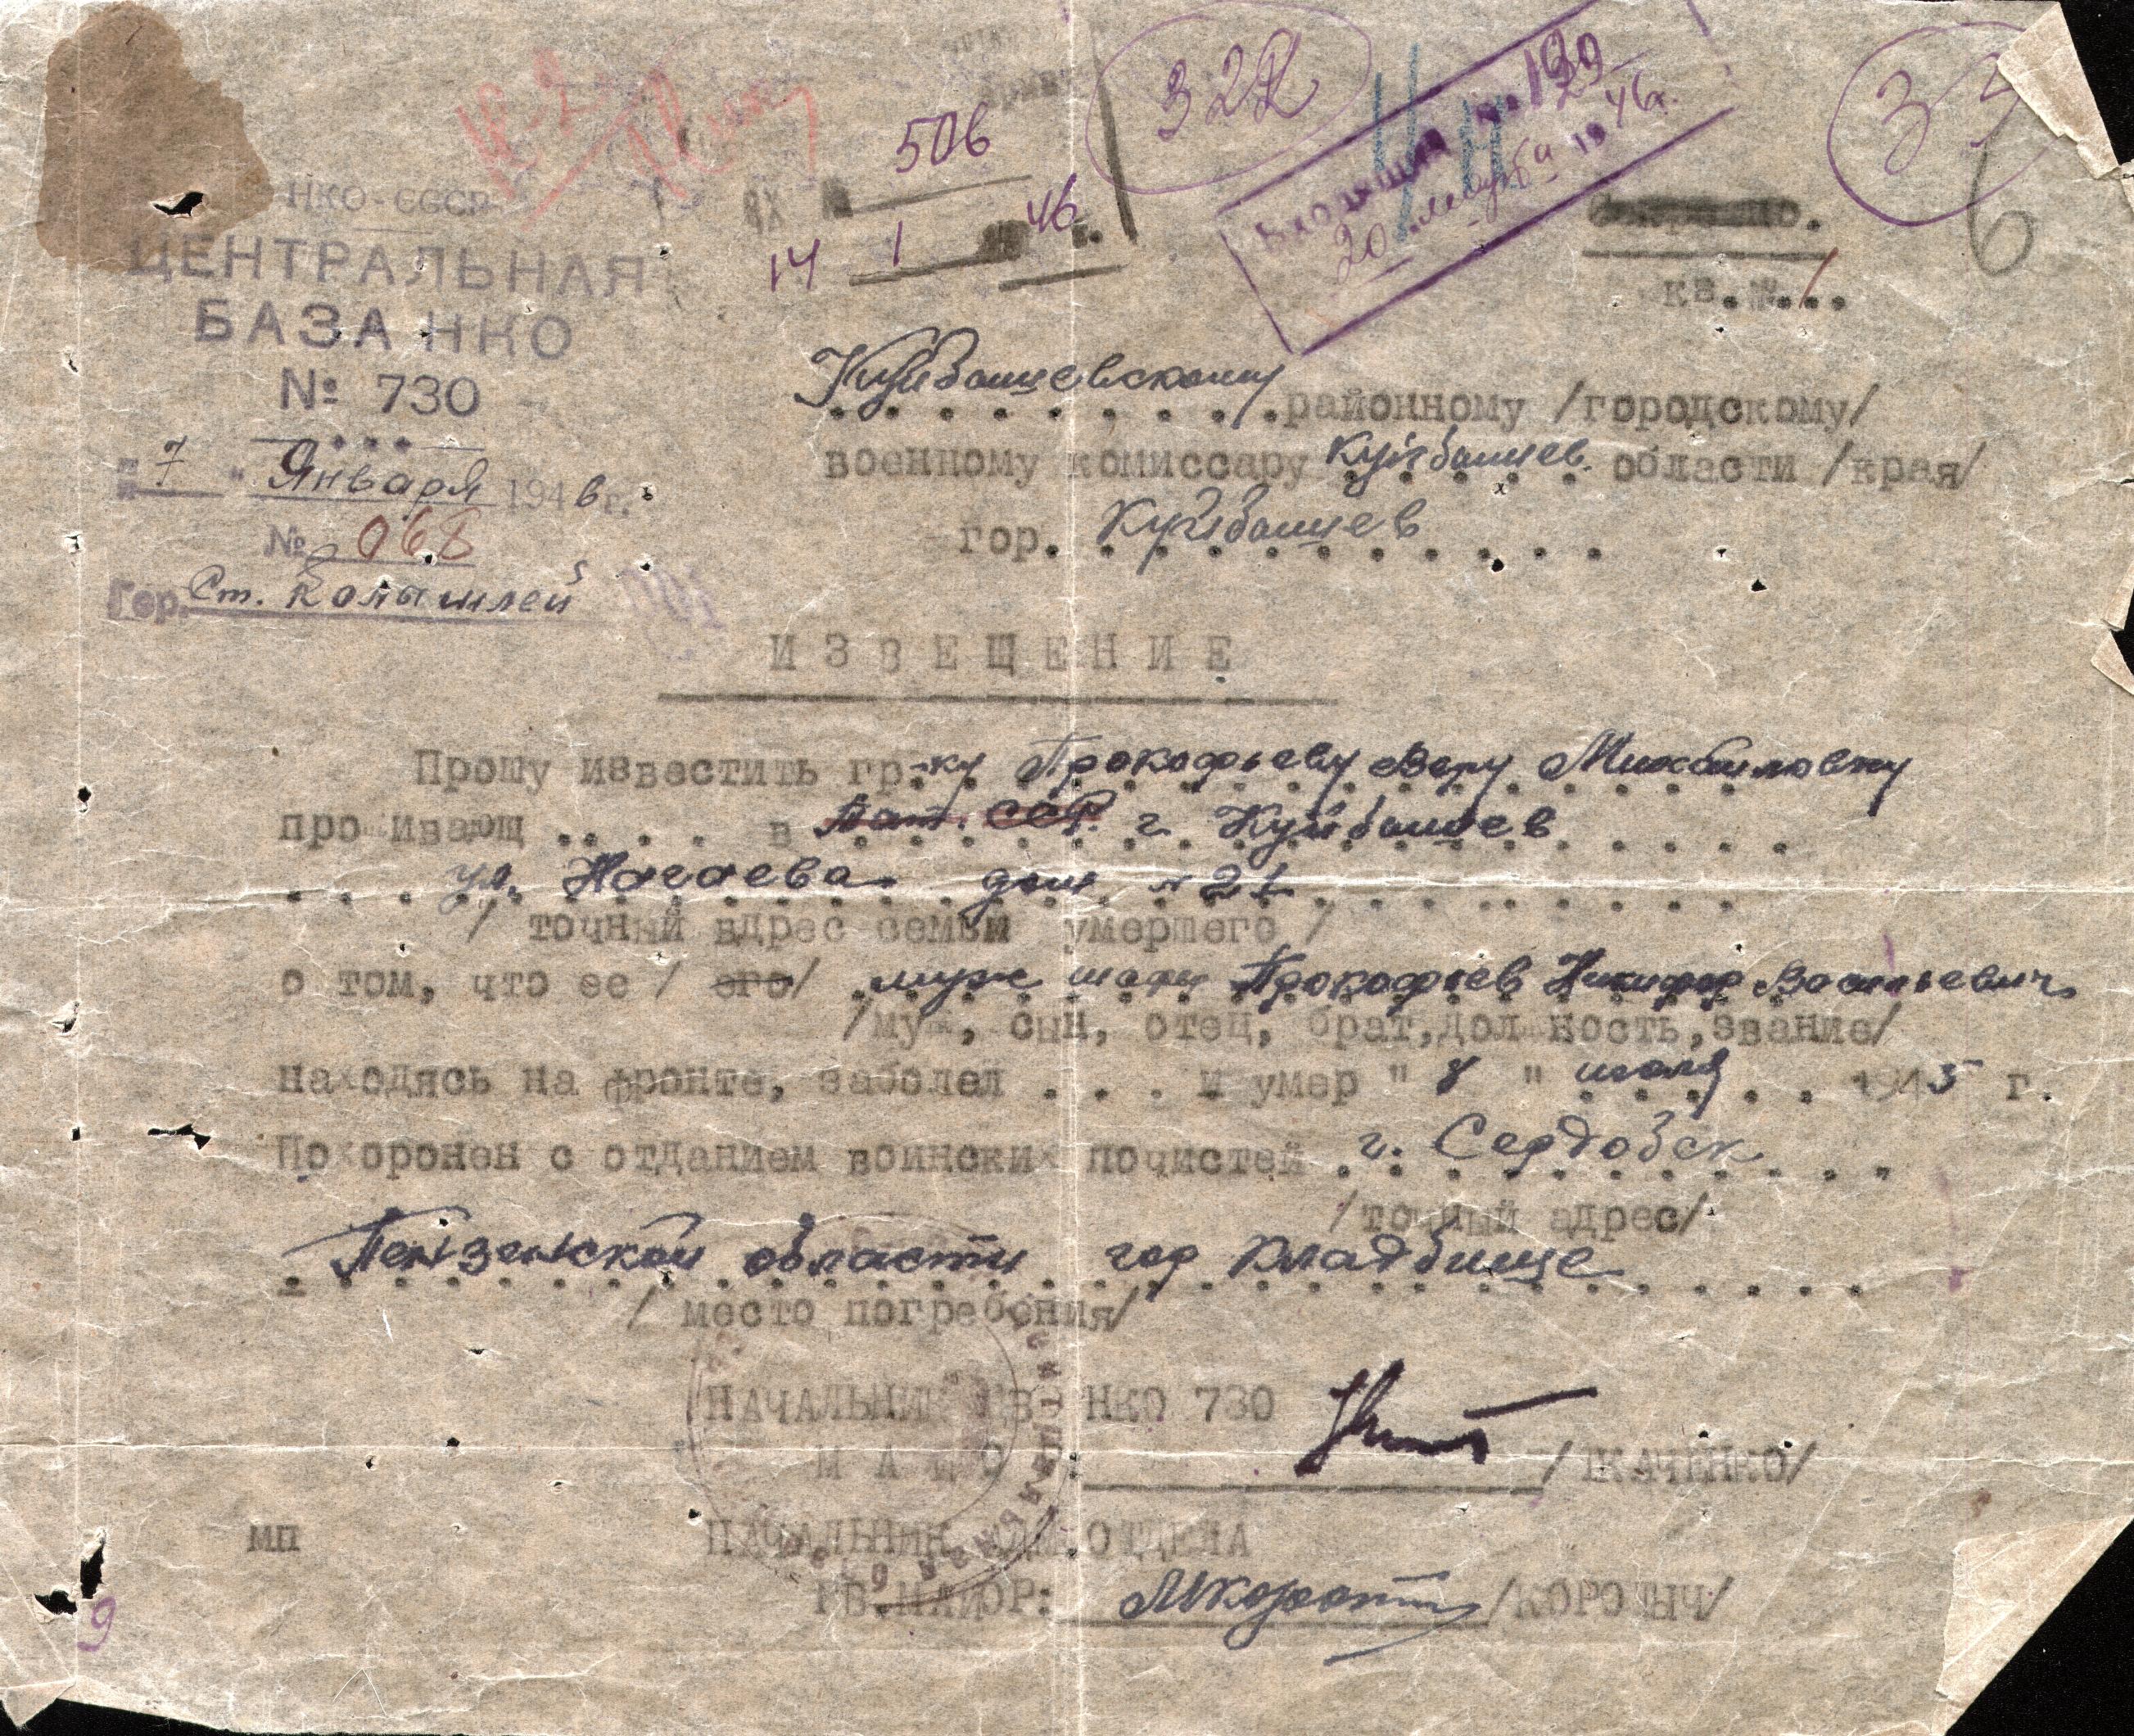 506
322
35
6
НКО-СССР
ВХ №
14 1 46 г.
20 19 46 г.
кв. № 1
ЦЕНТРАЛЬНАЯ
БАЗА НКО
№ 730
"7" Января 1946 г.
№ 068
Гор. Ст. Колышлей
Куйбышевскому районному /городскому/
военному комиссару Куйбышев. области /края/
гор. Куйбышев
ИЗВЕЩЕНИЕ
Прошу известить гр-ку Прокофьеву Веру Михайловну
проживающ .... в Лат. ССР. г. Куйбышев
ул. Нагаева дом № 21
/ точный адрес семьи умершего /
о том, что ее / его/ муж Прокофьев Никифор Васильевич
/муж, сын, отец, брат, должность, звание/
находясь на фронте, заболел . . . и умер " 8 " июля 1945 г.
Похоронен с отданием воинских почистей г. Сердобск
/точный адрес/
Пензенской области гор кладбище
/ место погребения/
НАЧАЛЬНИК ЦБ НКО 730
/ТКАЧЕНКО/
МП
НАЧАЛЬНИК ОТДЕЛА
КВ.МАЙОР: /КОРОТЫЧ/
9